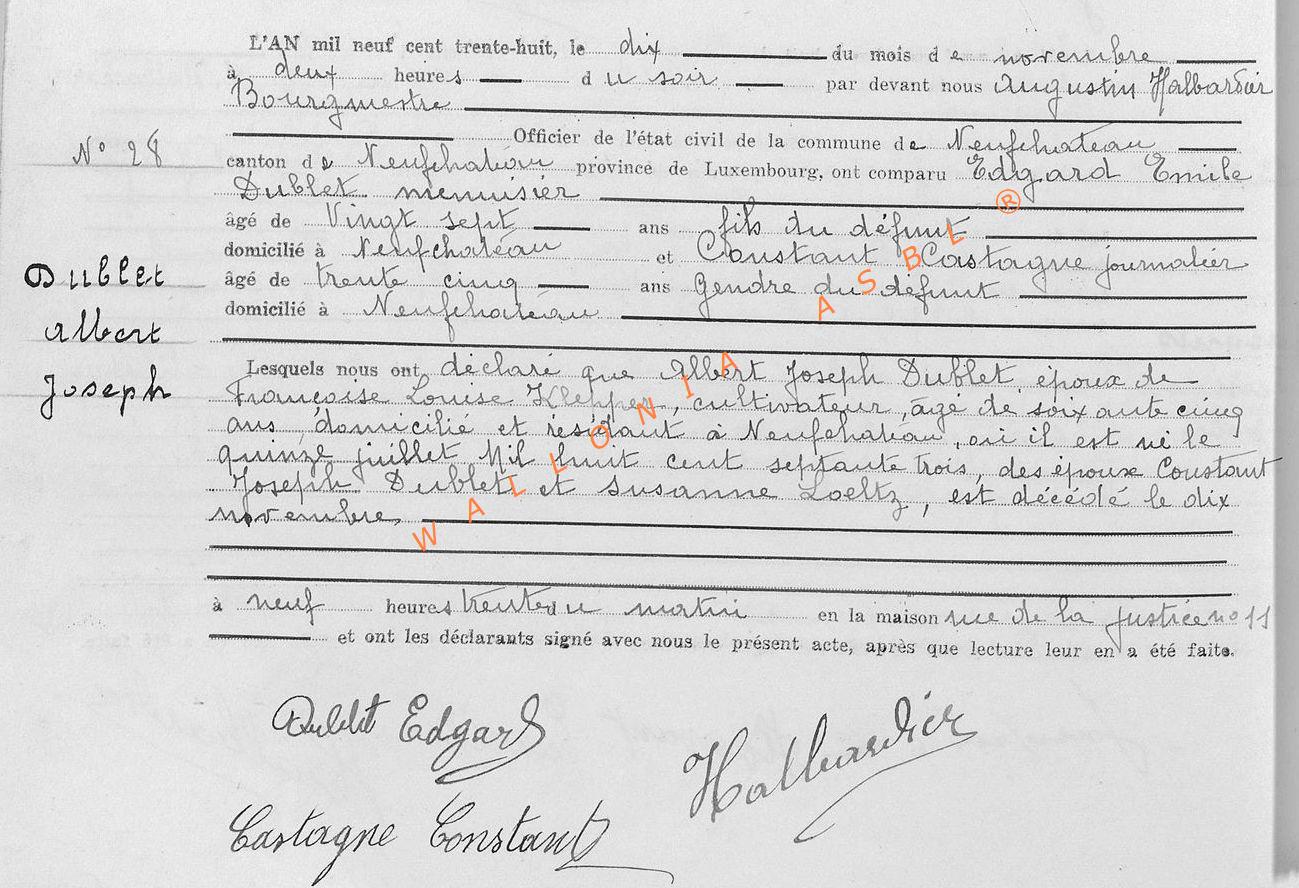 L'AN mil neuf cent trente-huit, le dix du mois de novembre
à deux heures du soir par devant nous Augustin Halbardier
Bourgmestre
Officier de l'état civil de la commune de Neufchateau
N° 28
canton de Neufchateau province de Luxembourg, ont comparu Edgard Emile
Dublet menuisier
âgé de Vingt sept ans fils du défunt
domicilié à Neufchateau et Constant Castagne journalier
Dublet
âgé de trente cinq ans Gendre du défunt
domicilié à Neufchateau
Albert
Lesquels nous ont déclaré que Albert Joseph Dublet, époux de
Joseph
Françoise Louise Klepper, cultivateur, âgé de soixante cinq
ans, domicilié et résidant à Neufchateau, où il est né le
quinze juillet Mil huit cent septante trois, des époux Constant
Joseph Dublet et Susanne Loeltz, est décédé le dix
novembre,
à neuf heures trente du matin en la maison rue de la justice n° 11
et ont les déclarants signé avec nous le présent acte, après que lecture leur en a été faite.
Dublet Edgard
Halbardier
Castagne Constant
WALLONIA ASBL ®